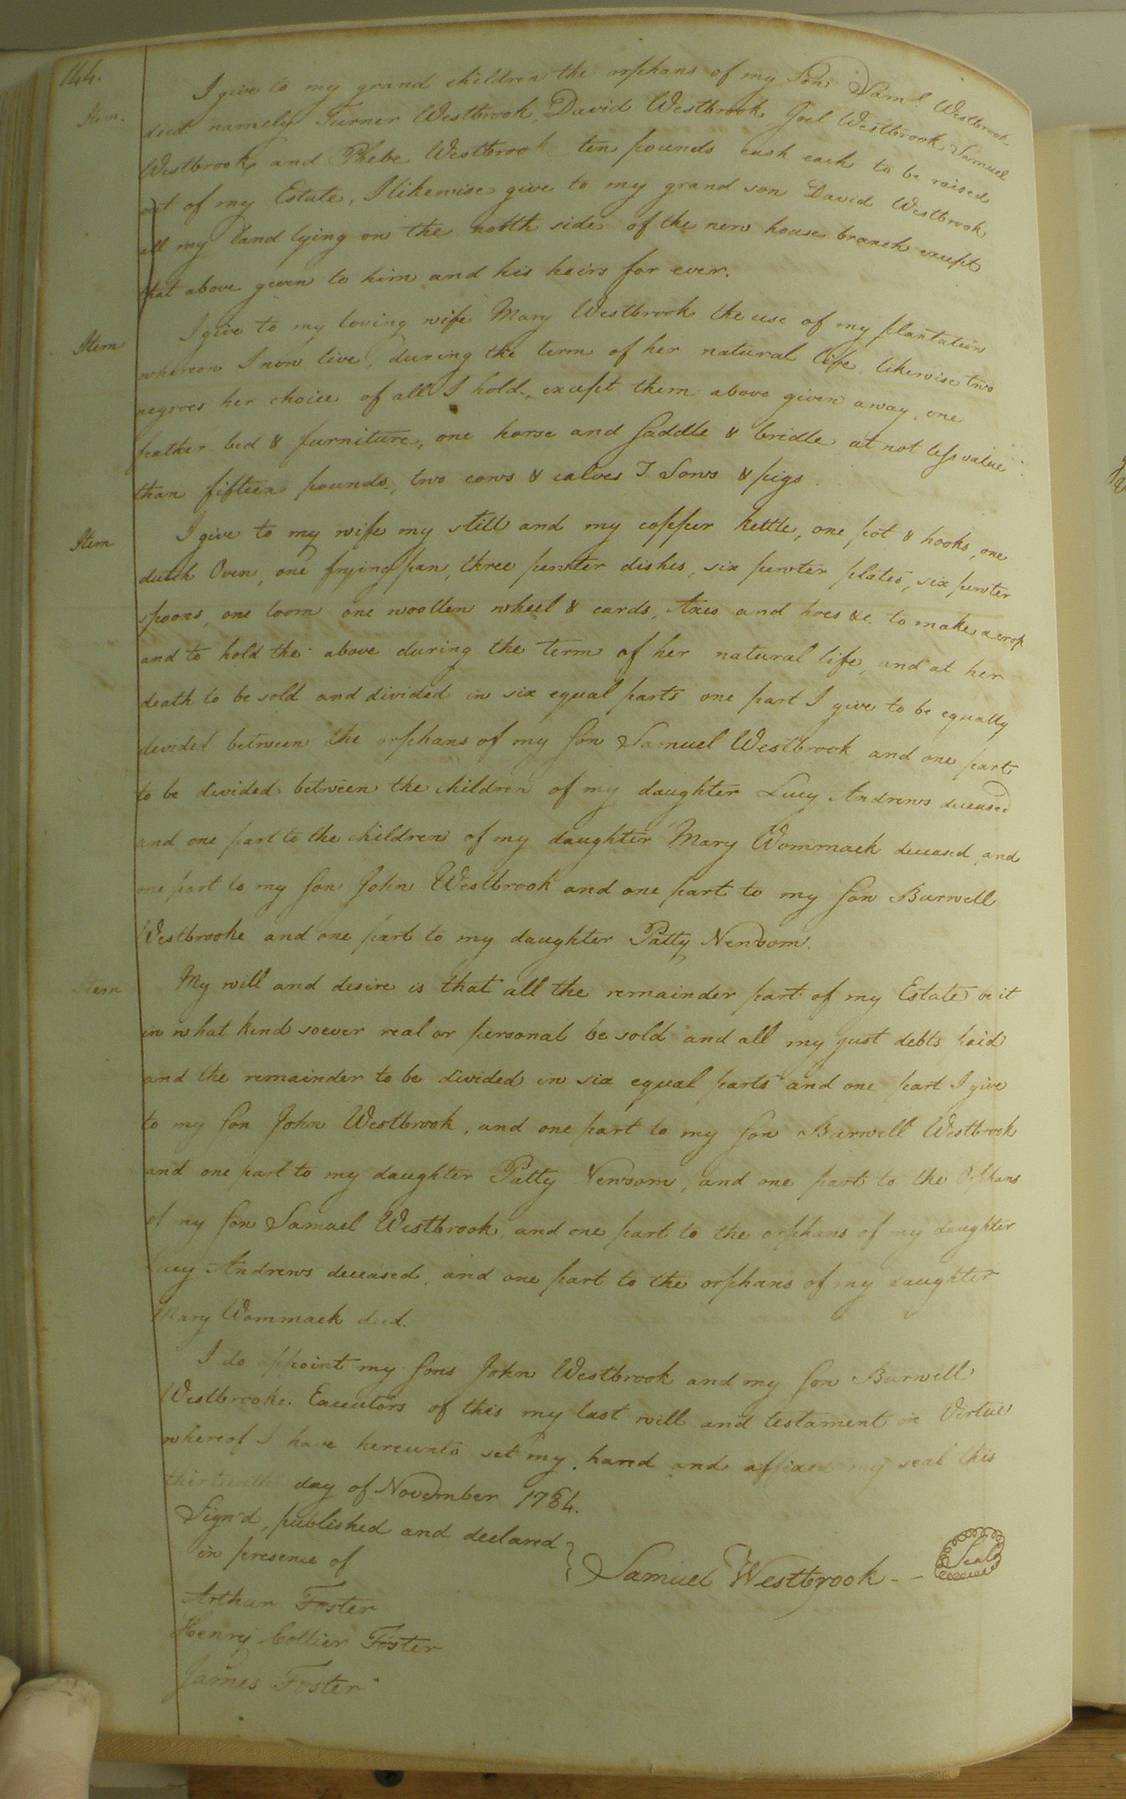 144.
Item. I give to my grand children the orphans of my Son Saml Westbrook
decd. namely Turner Westbrook, David Westbrook, Joel Westbrook, Samuel
Westbrook, and Phebe Westbrook ten pounds cash each to be raised
out of my Estate, I likewise give to my grand son David Westbrook
all my land lying on the north side of the new house branch except
that above given to him and his heirs for ever.
Item I give to my loving wife Mary Westbrook the use of my plantation
whereon I now live, during the term of her natural life, likewise two
negroes her choice of all I hold, except them above given away, one
feather bed & furniture, one horse and saddle & bridle at not less value
than fifteen pounds, two cows & calves Sows & pigs
Item I give to my wife my still and my copper kettle, one pot & hooks, one
dutch Oven, one frying pan, three pewter dishes, six pewter plates, six pewter
spoons, one loom one woollen wheel & cards, Axes and hoes &c. to make a crop
and to hold the above during the term of her natural life, and at her
death to be sold and divided in six equal parts one part I give to be equally
divided between the orphans of my son Samuel Westbrook and one part
to be divided between the children of my daughter Lucy Andrews deceased
and one part to the children of my daughter Mary Wommack deceased, and
one part to my son John Westbrook and one part to my son Burwell
Westbrooke and one part to my daughter Patty Newsom.
Item My will and desire is that all the remainder part of my Estate be it
in what kind soever real or personal be sold and all my just debts paid
and the remainder to be divided in six equal parts and one part I give
to my son John Westbrook, and one part to my son Burwell Westbrook
and one part to my daughter Patty Newsom, and one part to the Orphans
of my son Samuel Westbrook, and one part to the orphans of my daughter
Lucy Andrews deceased, and one part to the orphans of my daughter
Mary Wommack decd.
I do appoint my sons John Westbrook and my son Burwell
Westbrooke. Executors of this my last will and testament in Virtue
whereof I have hereunto set my hand and affixed my seal this
thirteenth day of November 1784.
Sign'd, published and declared
in presence of
Samuel Westbrook -- Seal
Arthur Foster
Henry Collier Foster
James Foster